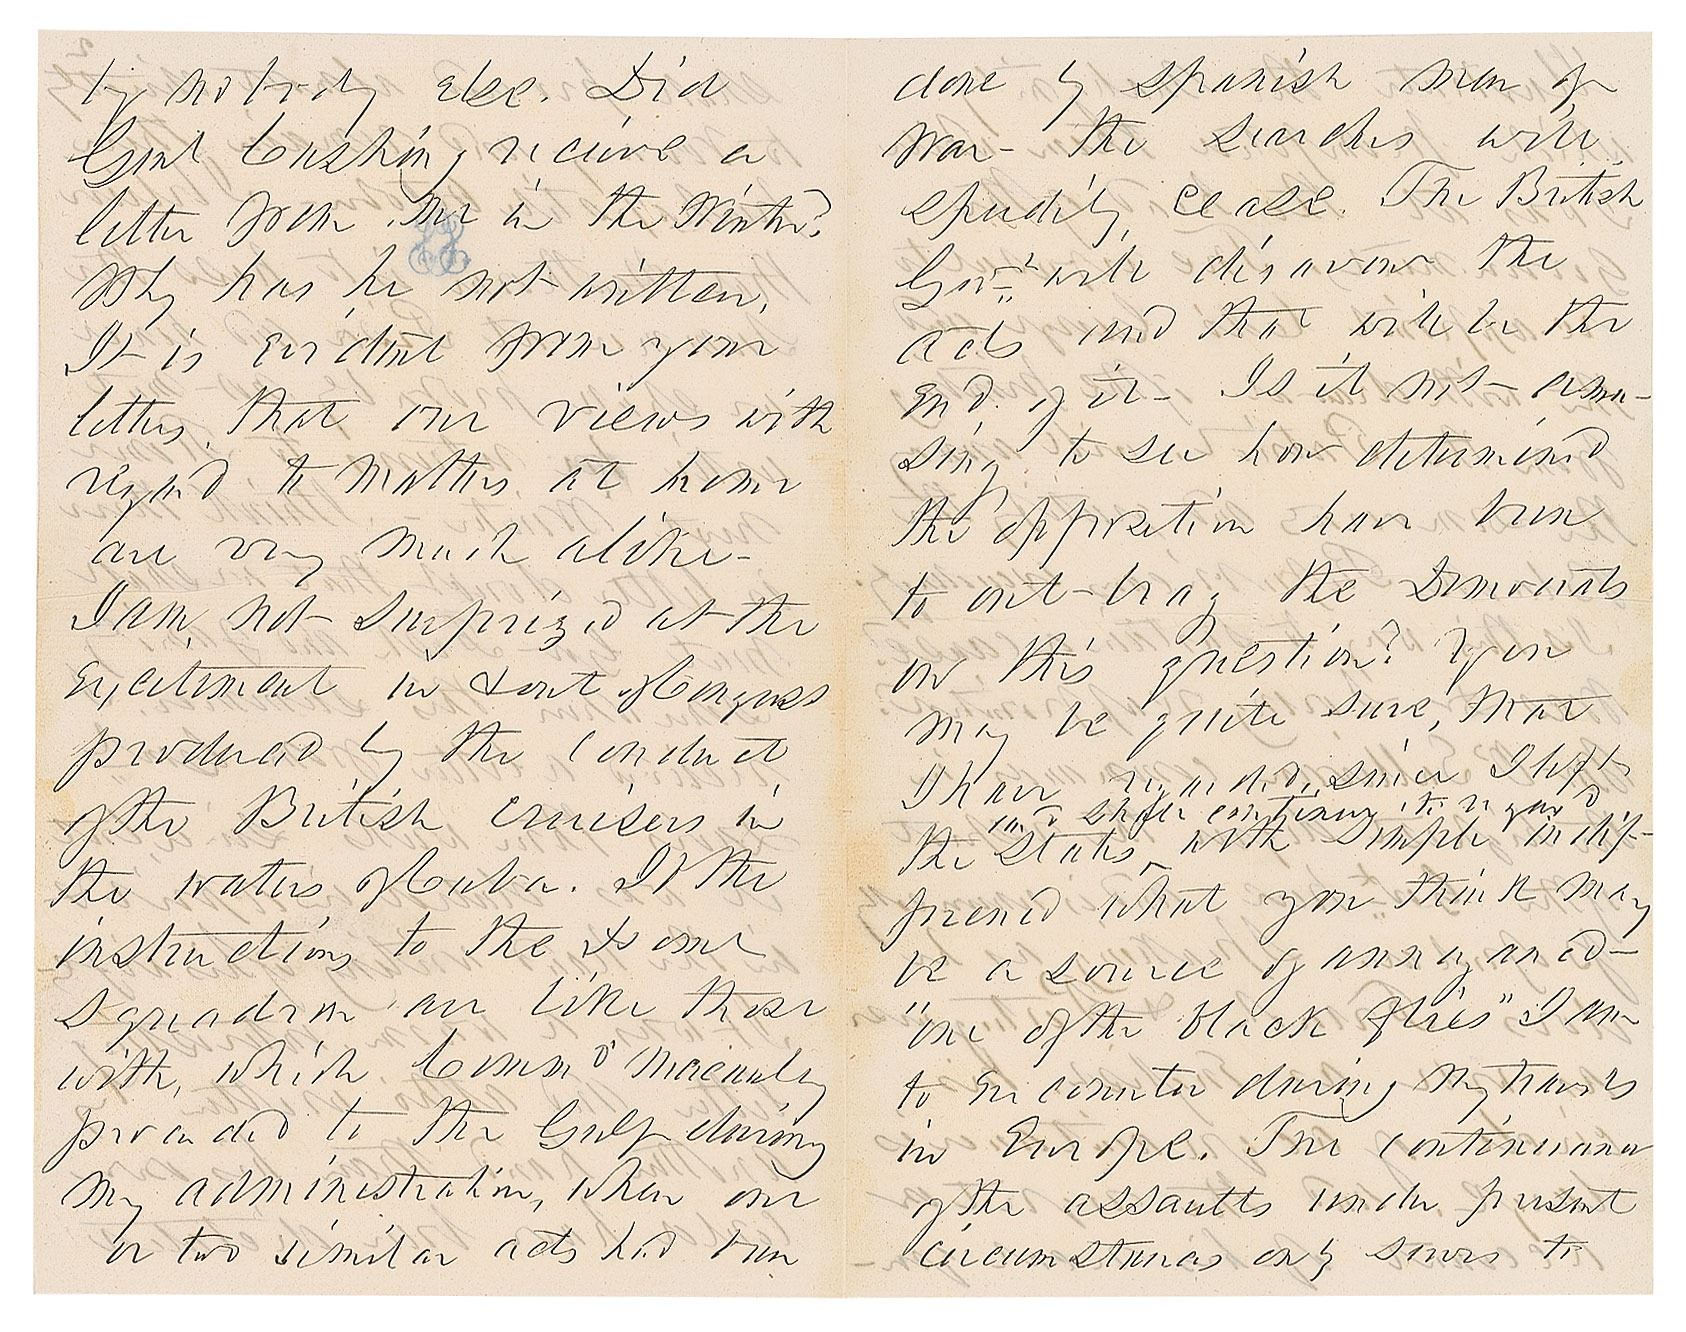 by nobody else. Did
Genl Cushing recieve a
letter from me in the Winter?
Why has he not written.
It is evident from your
letters, that our views with
regard to matters at home
are very much alike—
I am, not surprized at the
excitement in & out of Congress
produced by the conduct
of the British cruisers in
the waters of Cuba. If the
instructions to the Home
Squadron are like those
with, which Commo Macauley
proceeded to the Gulf during
my administration, when one
or two similar acts had been
done by Spanish men of
War— the searches will
speedily cease. The British
Govt will disavow the
acts and that will be the
end of it— Is it not amu-
sing to see how determined
the opposition have been
to out-brag the Democrats
on this question? You
may be quite sure, that
I have regarded, since I left
and shall continue to regard
the States, with simple indif-
ference what you think may
be a source of annoyance—
"one of the black flies" I am
to encounter during my travels
in Europe. The continuance
of the assaults under present
circumstances only serves to